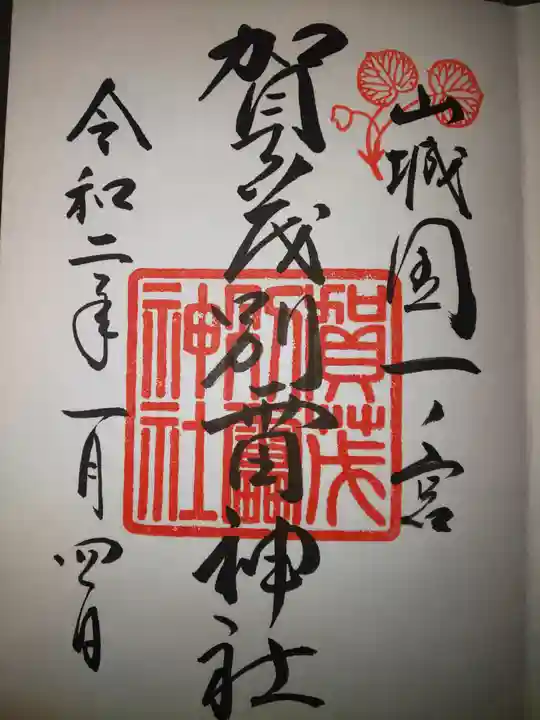 山城国一ノ宮
賀茂別雷神社
賀茂別雷神社
令和二年一月四日